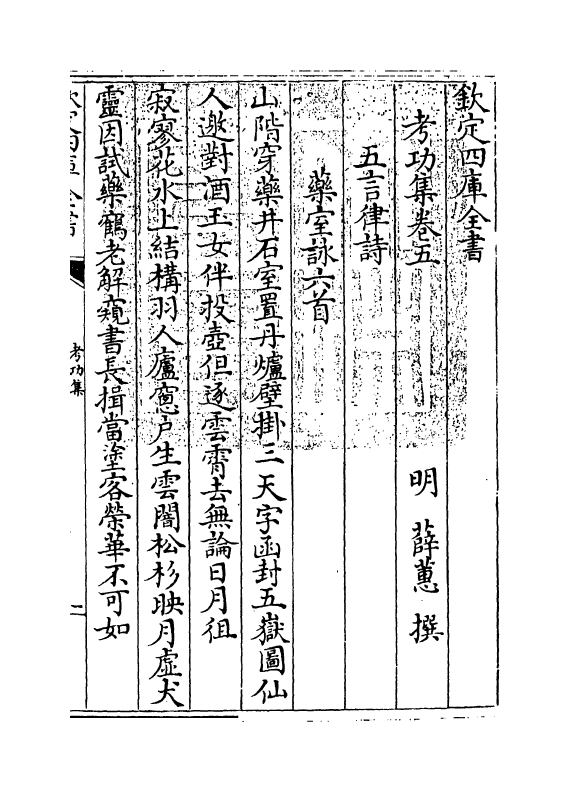 欽定四庫全書
考功集卷五
明 薛蕙 撰
五言律詩
藥室詠六首
山階穿藥井石室置丹爐壁掛三天字函封五嶽圖仙
人邀對酒玉女伴投壺但逐雲霄去無論日月徂
寂寥花水上結構羽人廬窓户生雲闇松杉映月虛犬
靈因試藥鶴老解窺書長揖當塗客榮華不可如
考功集